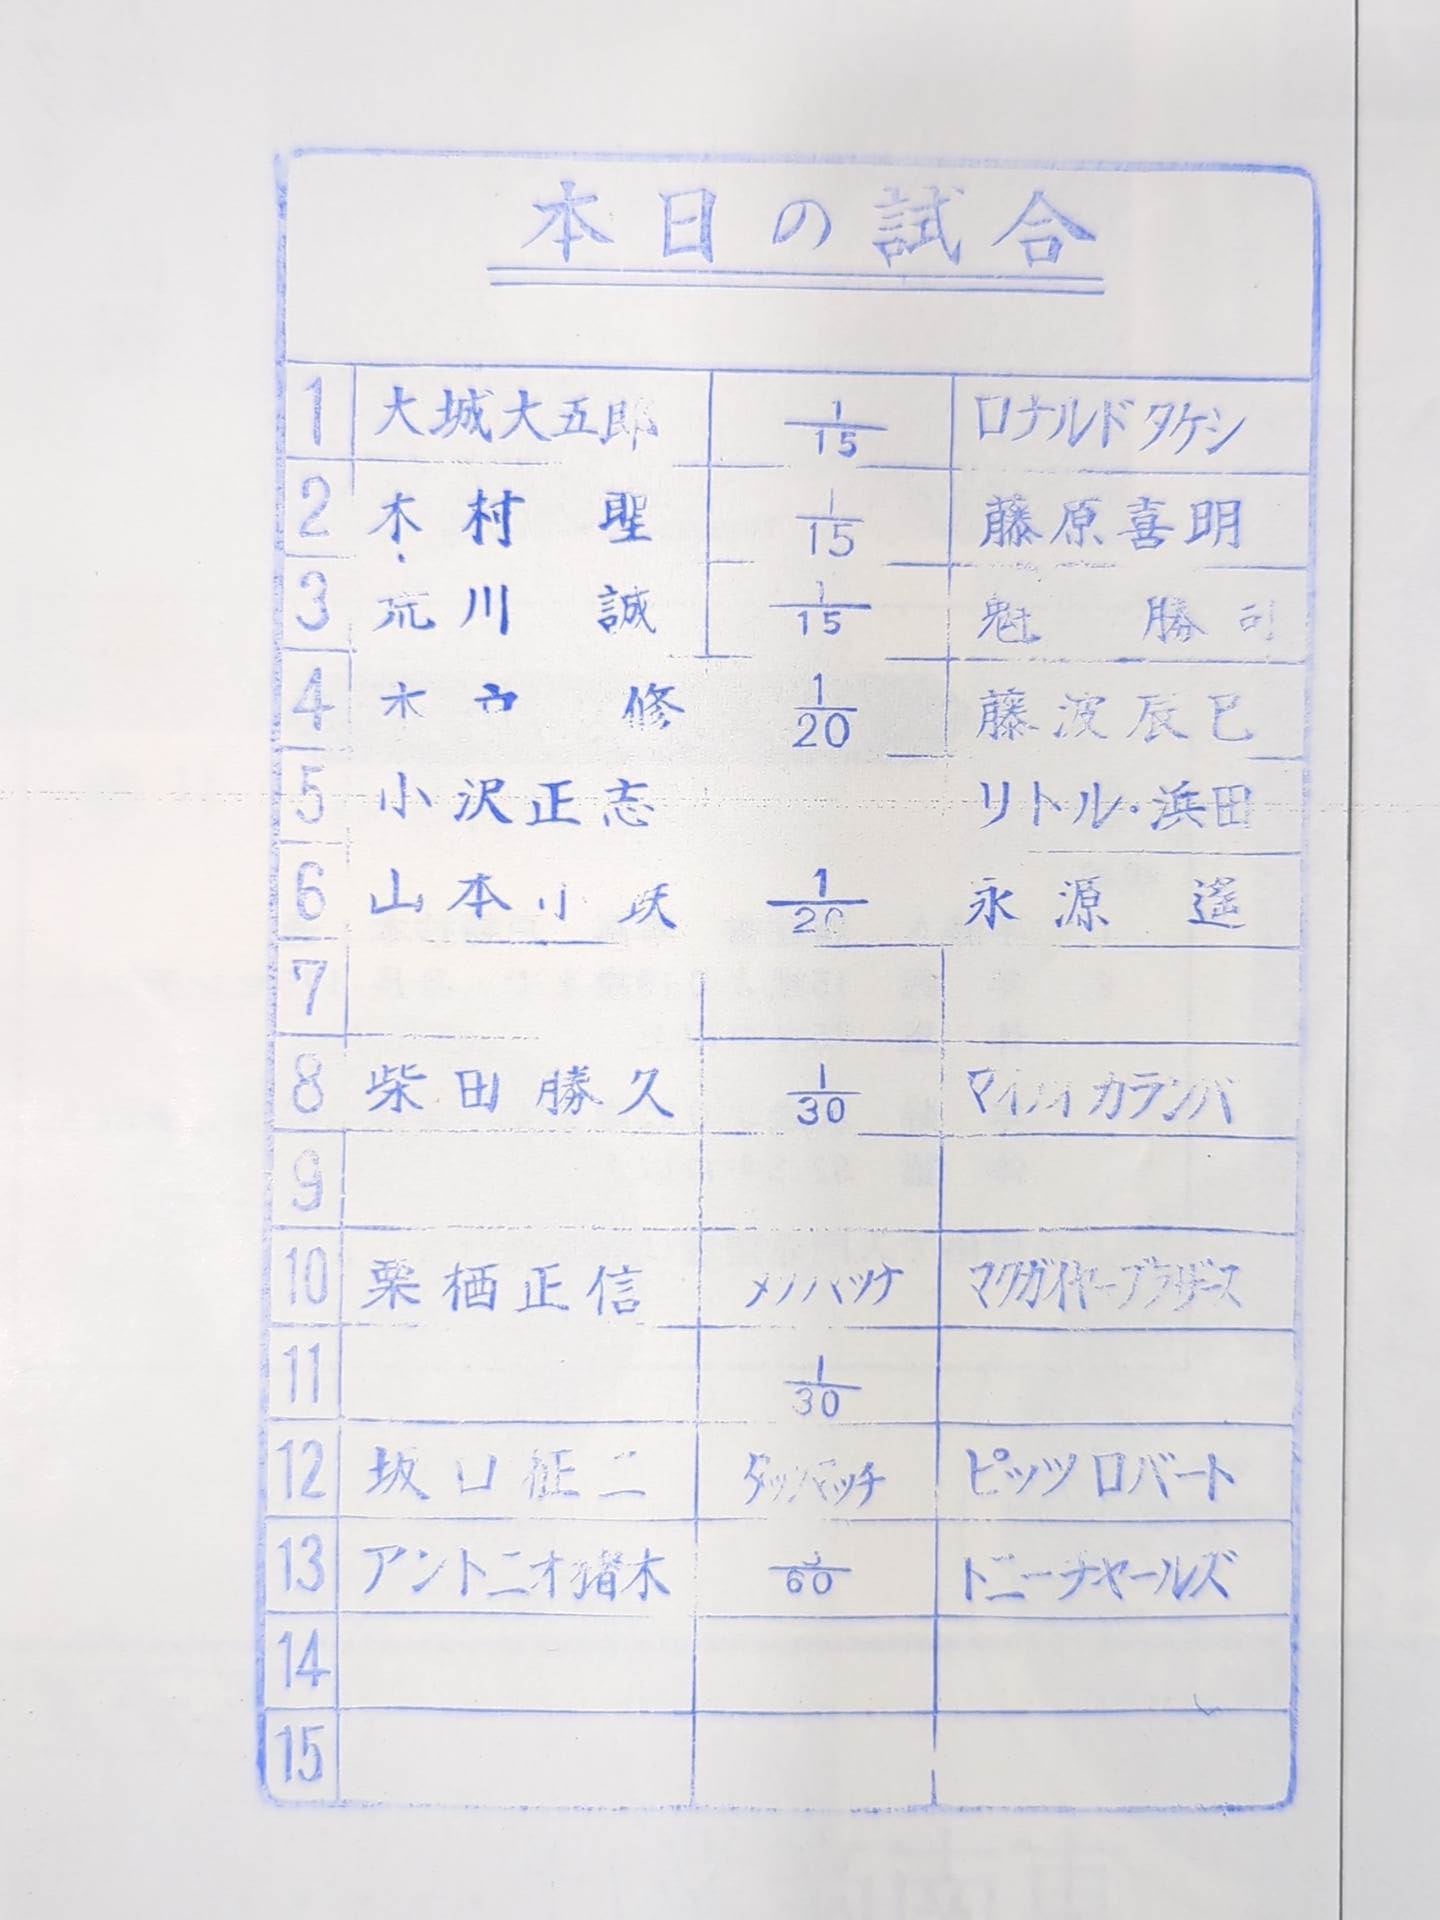 本日の試合
1 大城大五郎 1/15 ロナルドタケシ
2 木村聖 1/15 藤原喜明
3 荒川誠 1/15 魁勝司
4 木戸修 1/20 藤波辰巳
5 小沢正志 リトル・浜田
6 山本小鉄 1/20 永源遙
7
8 柴田勝久 1/30 カランバ
9
10 栗栖正信 マクガイヤーブラザース
11 1/30
12 坂口征二 タッグマッチ ピッツロバート
13 アントニオ猪木 /60 トニーチャールズ
14
15